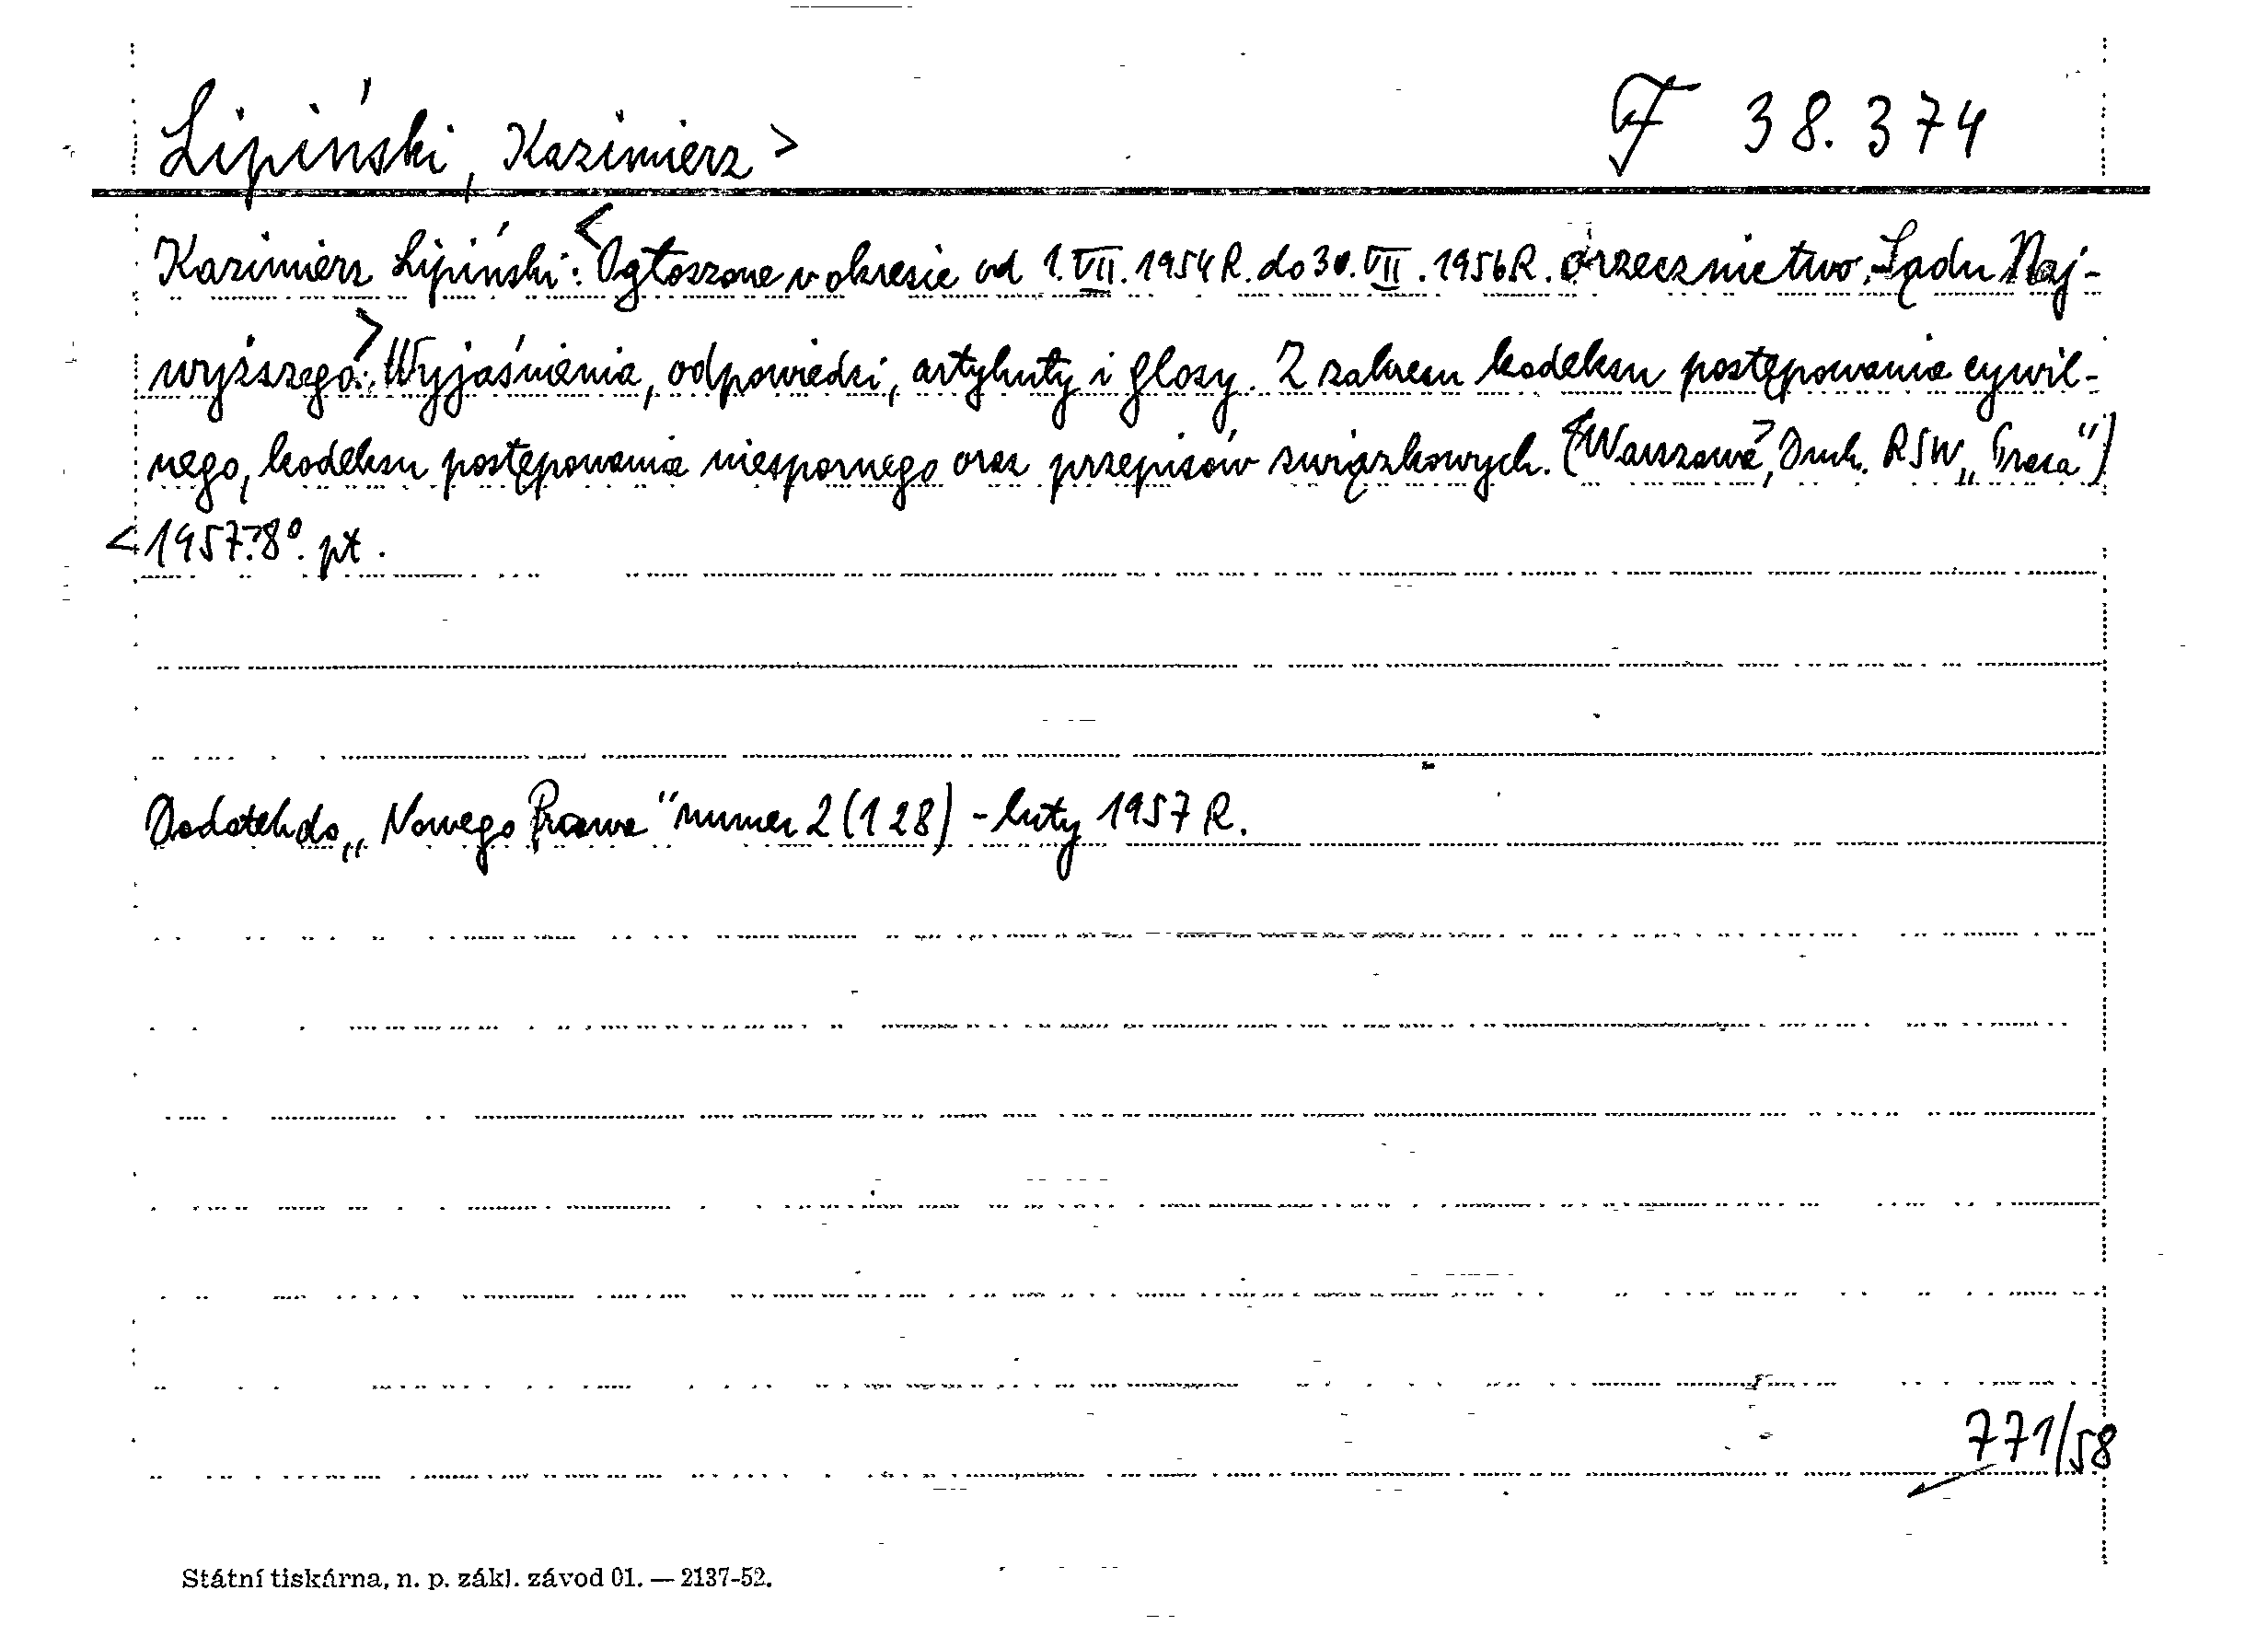 Lipiński, Kazimierz > F 38.374
Kazimierz Lipiński: <Ogłoszone w okresie od 1.VII.1954 R. do 30.VII.1956 R. orzecznictwo Sądu Naj-
wyższego.> Wyjaśnienia, odpowiedzi, artykuty i glosy. Z zakresu kodeksu postępowania cywil-
nego, kodeksu postępowania niespornego oraz przepisów związkowych. (<Warszawa>, Druk. RSW „Prasa")
<1957.> 8°. pt.
Dodatek do „Nowego Prawa" numer 2 (128) - luty 1957 R.
771/58
Státní tiskárna, n. p. zákl. závod 01. — 2137-52.